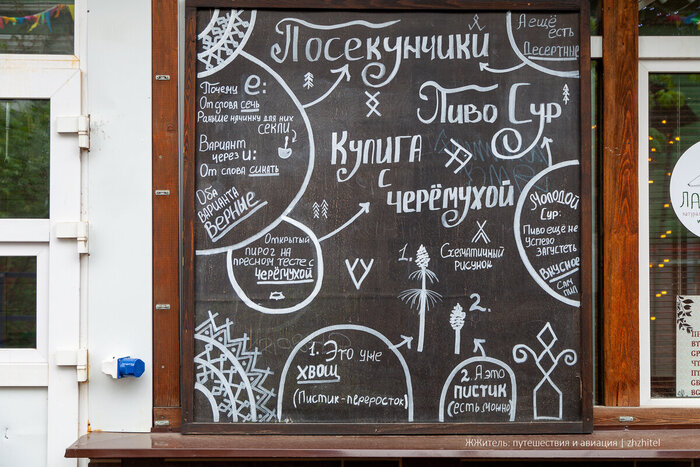 Посекунчики
А ещё
есть
Десертные
Почему е:
От слова сечь
Раньше начинку для них
секли
Вариант
через и:
От слова сикать
Оба
варианта
верные
Пиво Сур
Кулига
с
черёмухой
Молодой
Сур:
Пиво ещё не
успело
загустеть
Вкусное
Сам
пил
Открытый
пирог на
пресном тесте с
черёмухой
1.
Схематичный
рисунок
2.
1. Это уже
хвощ
(Пистик-переросток)
2. А это
пистик
(есть можно)
ЛА
ЖЖитель: путешествия и авиация | zhzhitel